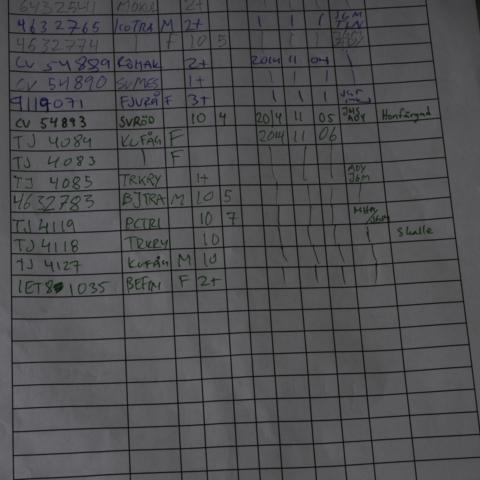 6432541 2+
4632765 KOTRA M 2+ | | | JGM
4632774 | F 10 5 | | |
CV 54889 ROHAK 2+ 2014 11 04 |
CV 54890 SVMES 1+ | | |
9119071 FJURÅ F 3+ | | |
CV 54893 SVRÖD 10 4 2014 11 05 ADY Honfärgad
TJ 4084 KUFÅG F 2014 11 06
TJ 4083 | F | | |
TJ 4085 TRKRY 1+ | | | ADY JGM
4632783 BJTRA M 10 5 | | |
TJ 4119 PCTRI 10 7 | | | MHA JGM
TJ 4118 TRKRY 10 | | | | Skalle
TJ 4127 KUFÅG M 10 | | | |
1ET81035 BEFIN F 2+ | | | |